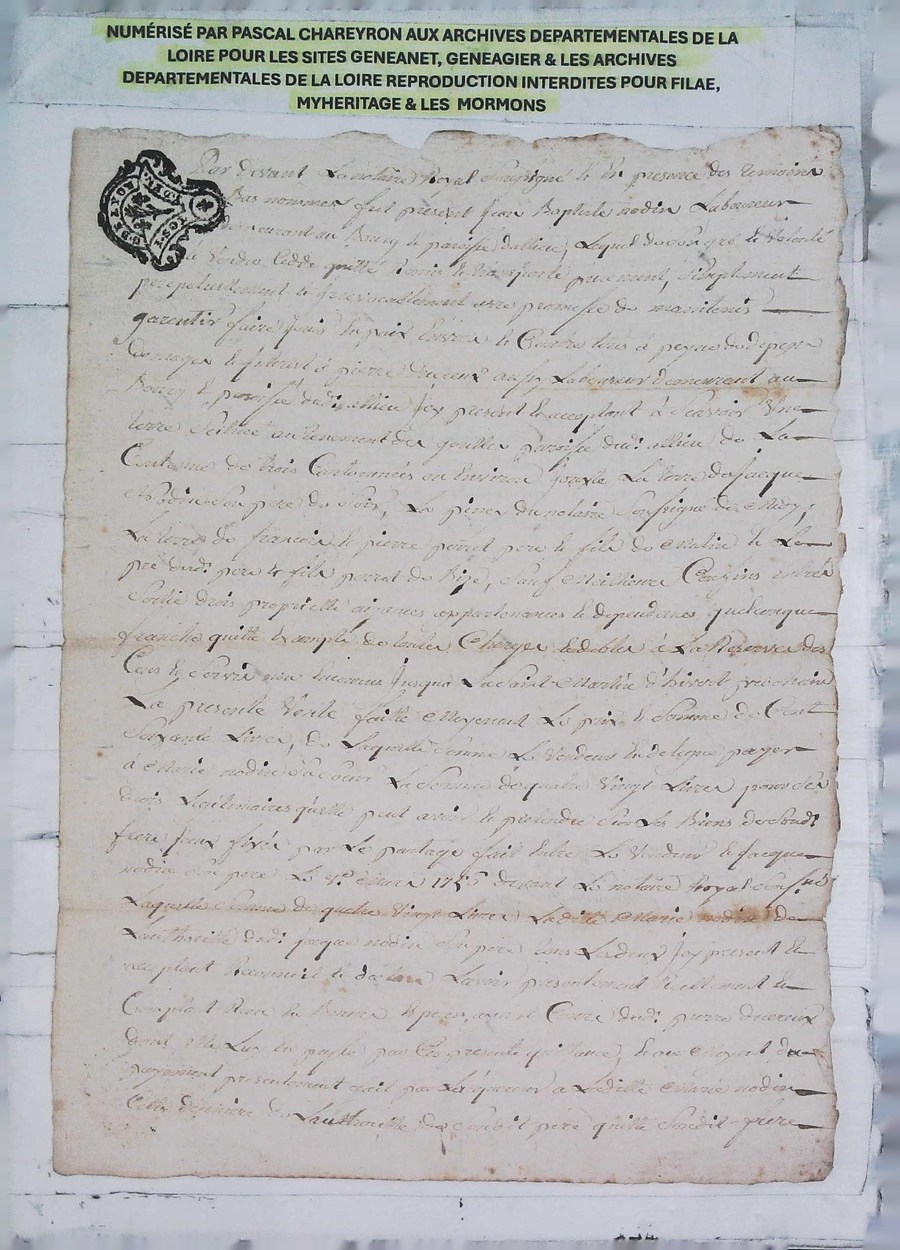 NUMÉRISÉ PAR PASCAL CHAREYRON AUX ARCHIVES DEPARTEMENTALES DE LA
LOIRE POUR LES SITES GENEANET, GENEAGIER & LES ARCHIVES
DEPARTEMENTALES DE LA LOIRE REPRODUCTION INTERDITES POUR FILAE,
MYHERITAGE & LES MORMONS
Par devant Le notaire Royal Soussigné et En presence des temoins
Bas nommés fut present Jean Baptiste nodin Laboureur
demeurant au Bourg et paroisse dallieu, Lequel de son gré et Volonté
à Vendu Cedde quitté Remis et transporté purement, Simplement
perpetuellement et Irrevocablement avec promesse de maintenir
garentir faire Jouir En paix Envers et Contre tous à peyne de depens
Domages et Interest à pierre Ducreux aussy Laboureur demeurant au
Bourg et paroisse dudit allieu Icy present et acceptant à Scavoir Une
terre Scituée au tenement des paroisse dudit allieu de La
Contenue de trois Cartonnées ou Environ Jouxte La terre de Jacque
Nodin Son pere de Soir, La du notaire Soussigné de Midy,
La terre de françois et pierre perret pere et fils de Matin et Le
pré dudit pere et fils perret de Bize, Sauf Meilleures Confins entrée
Sortie droit proprietté aizances appartenances et dependances quelconque
franche quitte Exempte de toutes Charges et debtes à La Reserve des
Cens et Servis non Encourus Jusqua La Saint Martin d'hivert prochain
La presente Vente faitte Moyenent Le prix et Somme de Cent
Soixante Livres, de Laquelle Somme Le Vendeur En deleque payer
à Marie nodin Sa Soeur La Somme de quatre Vingt Livres pour Ses
droits Légitimaires qu'elle peut avoir et pretendre Sur Les Biens de Sondit
frere Iceux fixés par Le partage fait Entre Le Vendeur et Jacque
nodin Son pere Le devant Le notaire Royal Soussigné
Laquelle Somme de quatre Vingt Livres Laditte Marie nodin de
L'authoritté dudit Jacque nodin Son pere tous Les deux Icy present et
acceptant Reconnoit et declare Lavoir presentement Reellement et
Comptant Receu En Bonnes Especes ayant Cours dudit pierre ducreux
dont Elle Luy En passe par Ces presente quittance, et au Moyent du
payement presentement fait par Lacquereur a Laditte Marie nodin
Cette derniere de Lauthoritté de Sondit pere quitte Sondit frere